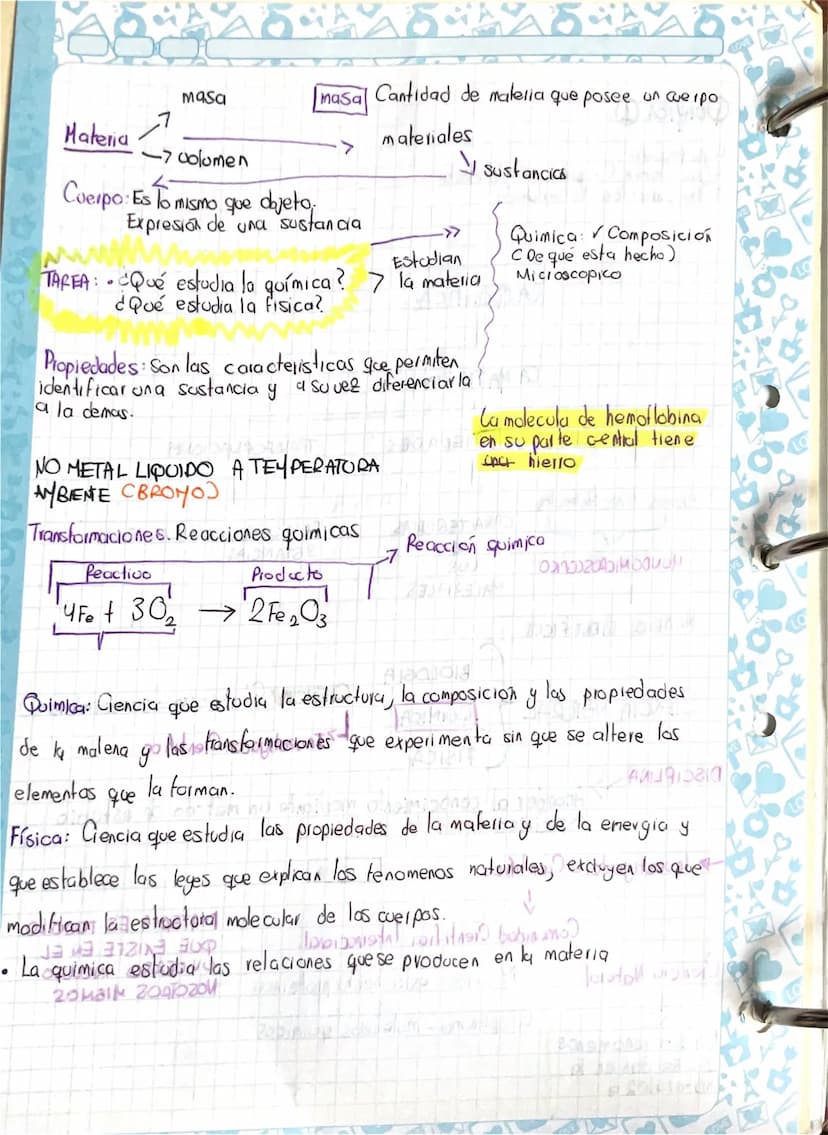 masa
masa Cantidad de materia que posee un cuerpo
Materia
materiales
volumen
sustancias
Cuerpo: Es lo mismo que objeto.
Expresión de una sustancia
Quimica: ✓ Composición
(De qué esta hecho)
Microscopico
Estudian
la materia
TAREA: • ¿Qué estudia la química?
¿Qué estudia la física?
Propiedades: Son las caracteristicas que permiten
identificar una sustancia y a su vez diferenciarla
a la demas.
La molecula de hemoflobina
en su parte central tiene
hierro
NO METAL LIQUIDO A TEMPERATURA
AMBIENTE (BROMO)
Transformaciones. Reacciones quimicas
Reacción quimica
Reactivo Producto
4Fe + 3O₂ → 2Fe₂O₃
Quimica: Ciencia que estudia la estructura, la composicion y las propiedades
de la materia y las transformaciones que experimenta sin que se altere los
elementos que la forman.
Física: Ciencia que estudia las propiedades de la materia y de la energía y
que establece las leyes que explican los fenomenos naturales, excluyen los que
modifican la estructura molecular de los cuerpos.
• La quimica estudia las relaciones que se producen en la materia